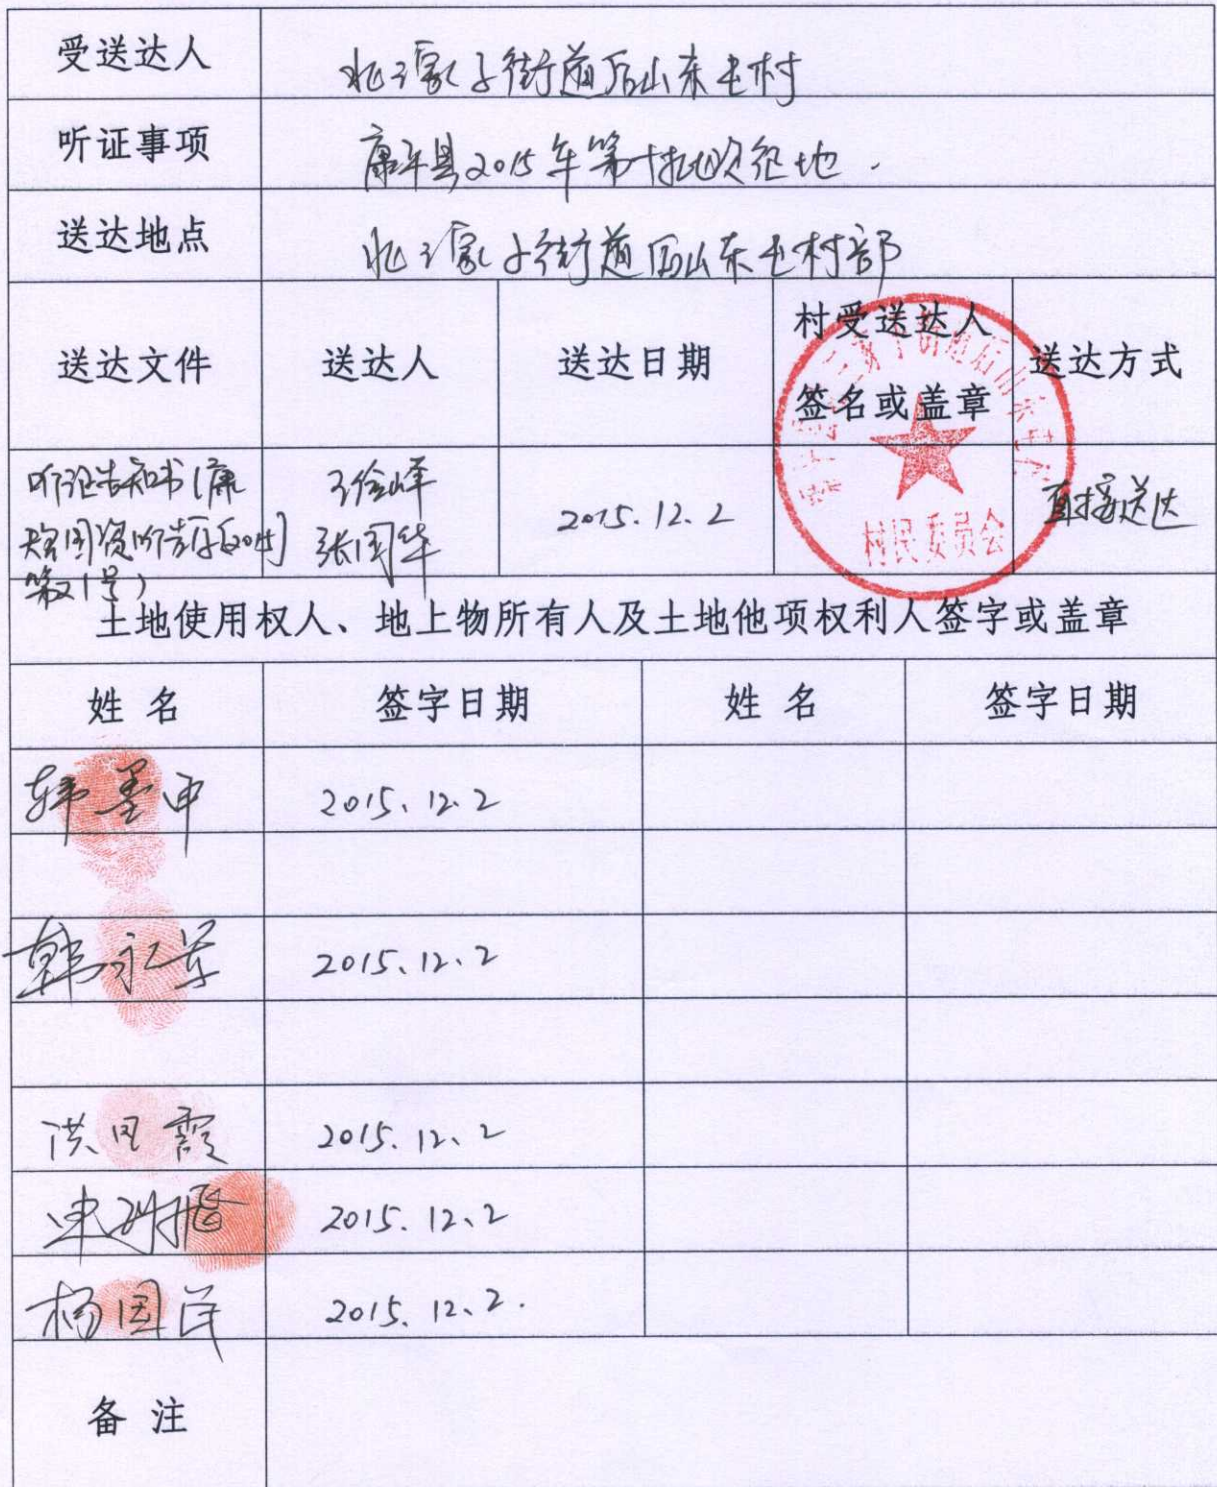 受送达人
北三家子街道后山东屯村
听证事项
康平县2015年第十批次征地.
送达地点
北三家子街道后山东屯村部
送达文件 送达人 送达日期 村受送达人 签名或盖章 送达方式
听证告知书(康
国资听告字[2015]
第21号)
张国华
2015.12.2
直接送达
村民委员会
土地使用权人、地上物所有人及土地他项权利人签字或盖章
姓 名 签字日期 姓 名 签字日期
2015.12.2
韩永 2015.12.2
洪凤霞 2015.12.2
2015.12.2
杨国民 2015.12.2.
备 注